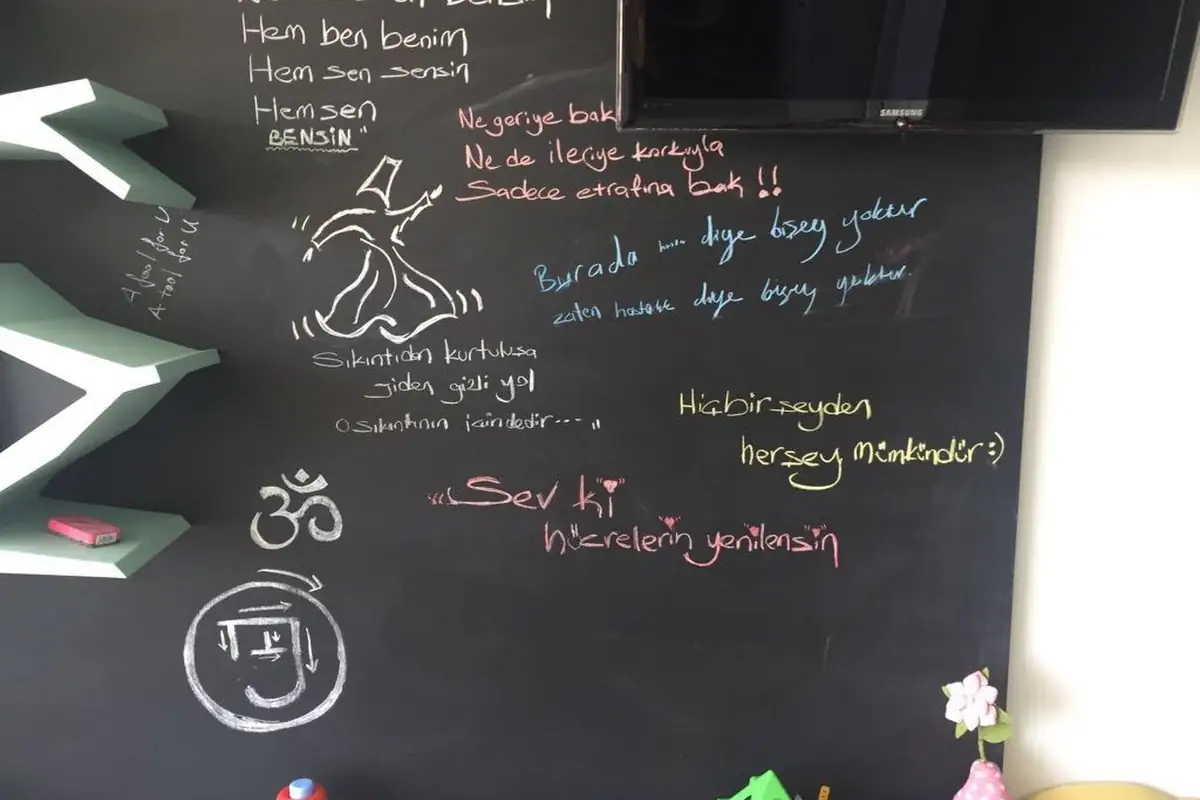 Hem ben benim
Hem sen sensin
Hem sen
BENSiN"
SAMSUNG
Ne geriye bak
Ne de ileriye korkuyla
Sadece etrafına bak !!
A fool for U
A tool for U
Burada diye bişey yoktur
zaten hastalık diye bişey yoktur.
Sıkıntıdan kurtuluşa
giden gizli yol
O sıkıntının içindedir...."
Hiçbirşeyden
herşey mümkündür :)
"Sev ki
hücrelerin yenilensin
ॐ